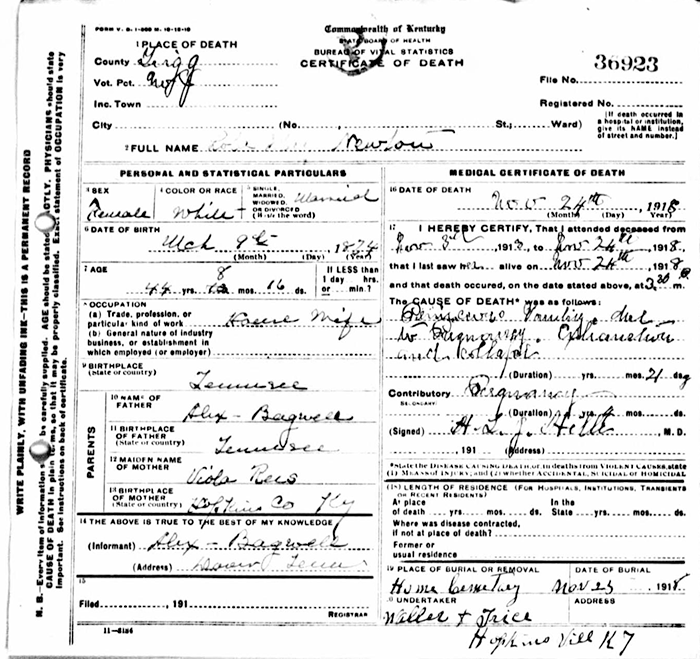 FORM V. S. 1-
Commonwealth of Kentucky
STATE BOARD OF HEALTH
BUREAU OF VITAL STATISTICS
CERTIFICATE OF DEATH
1 PLACE OF DEATH
County Trigg
Vot. Pct.
Inc. Town
City (No. St.; Ward)
36923
File No.
Registered No.
[If death occurred in a hospital or institution, give its NAME instead of street and number.]
2 FULL NAME Newton
WRITE PLAINLY, WITH UNFADING INK—THIS IS A PERMANENT RECORD
N. B.—Every item of information should be carefully supplied. AGE should be stated EXACTLY. PHYSICIANS should state
CAUSE OF DEATH in plain terms, so that it may be properly classified. Exact statement of OCCUPATION is very
important. See instructions on back of certificate.
PERSONAL AND STATISTICAL PARTICULARS
3 SEX
Female
4 COLOR OR RACE
White
5 SINGLE, MARRIED, WIDOWED, OR DIVORCED (Write the word)
Married
6 DATE OF BIRTH
Mch 9th 1874
(Month) (Day) (Year)
7 AGE
44 yrs. 8 mos. 16 ds.
If LESS than 1 day hrs. or min.?
8 OCCUPATION
(a) Trade, profession, or particular kind of work House Wife
(b) General nature of industry business, or establishment in which employed (or employer)
9 BIRTHPLACE
(State or country)
Tennessee
PARENTS
10 NAME OF FATHER
Alex - Bagwell
11 BIRTHPLACE OF FATHER
(State or country)
Tennessee
12 MAIDEN NAME OF MOTHER
Viola
13 BIRTHPLACE OF MOTHER
(State or country)
Hopkins Co Ky
14 THE ABOVE IS TRUE TO THE BEST OF MY KNOWLEDGE
(Informant) Alex - Bagwell
(Address) Dover Tenn
15
Filed , 191
REGISTRAR
11-6184
MEDICAL CERTIFICATE OF DEATH
16 DATE OF DEATH
Nov 24th , 1918
(Month) (Day) (Year)
17 I HEREBY CERTIFY, That I attended deceased from
Nov 3rd , 1918, to Nov 24th 1918,
that I last saw her alive on Nov 24th 1918
and that death occurred, on the date stated above, at 3 20 P. m.
The CAUSE OF DEATH* was as follows:
Pernicious Vomiting due
to Pregnancy. Exhaustion
and Collapse
(Duration) yrs. mos. 21 ds.
Contributory Pregnancy
SECONDARY
(Duration) yrs. 4 mos. ds.
(Signed) M. D.
, 191 (Address)
*State the DISEASE CAUSING DEATH or in deaths from VIOLENT CAUSES, state (1) MEANS OF INJURY; and (2) whether ACCIDENTAL, SUICIDAL OF HOMICIDAL
18 LENGTH OF RESIDENCE (FOR HOSPITALS, INSTITUTIONS, TRANSIENTS OR RECENT RESIDENTS)
At place of death yrs. mos. ds. In the State yrs. mos. ds.
Where was disease contracted, if not at place of death?
Former or usual residence
19 PLACE OF BURIAL OR REMOVAL
Home Cemetery
DATE OF BURIAL
Nov 25 1918
20 UNDERTAKER
Waller & Trice
ADDRESS
Hopkins Vill KY